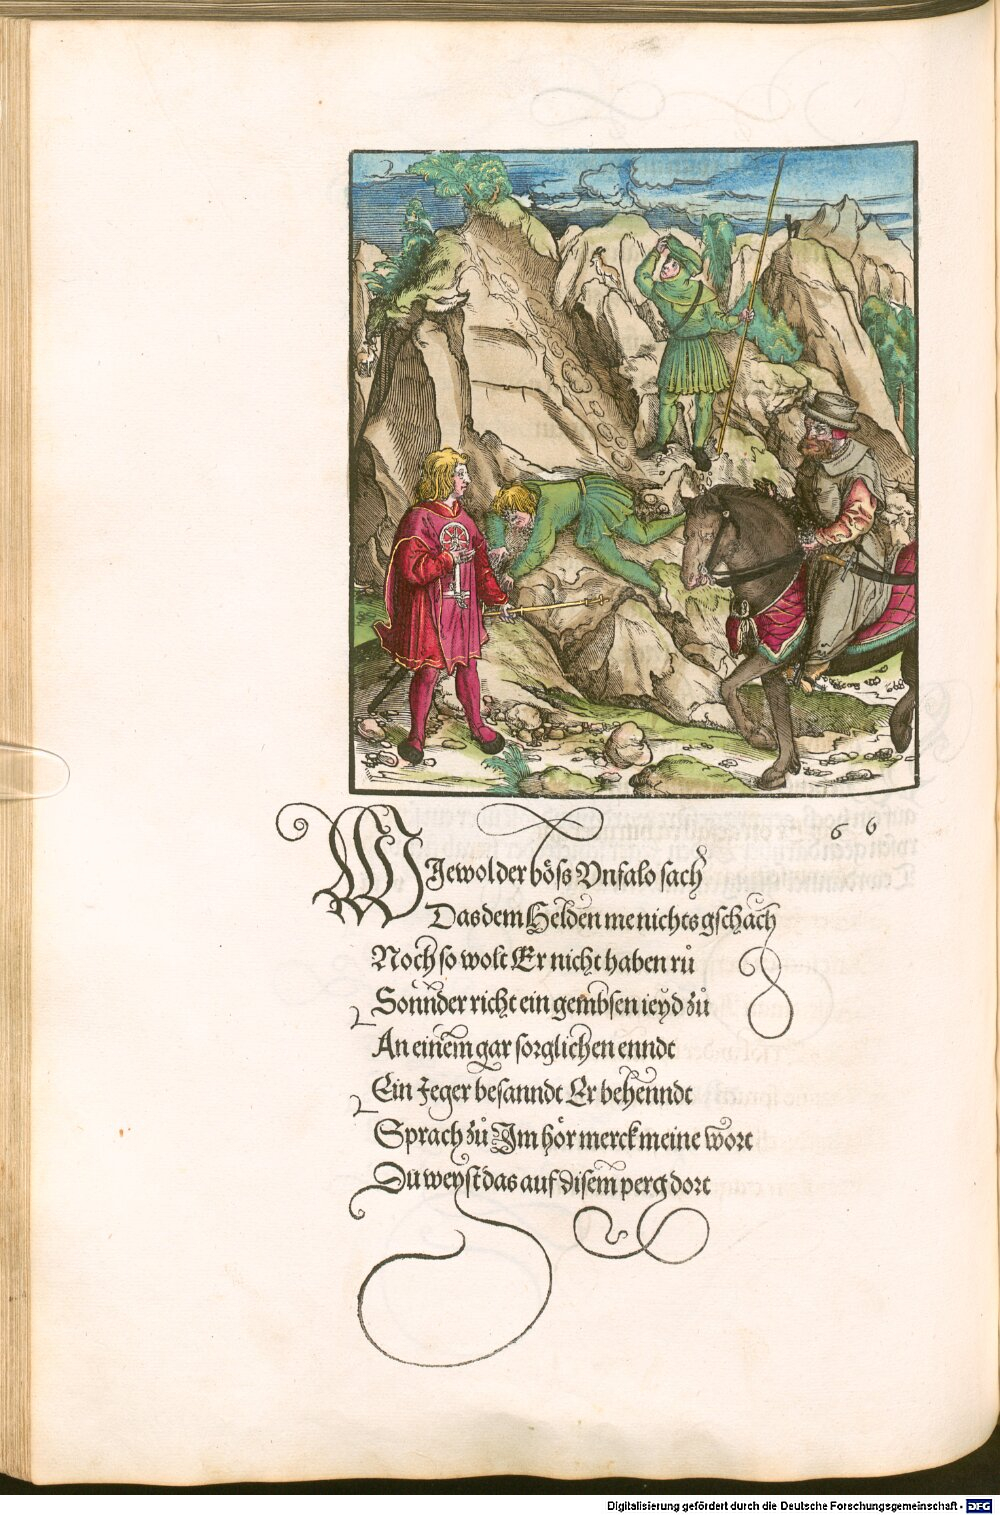 66
WIewol der böss Vnfalo sach
Das dem Helden me nichts gschach
Noch so wolt Er nicht haben rů
Sonnder richt ein gembsen ieyd zů
An einem gar sorglichen enndt
Ein Jeger besanndt Er behenndt
Sprach zů Im hör merck meine wort
Du weyst das auf disem perg dort
Digitalisierung gefördert durch die Deutsche Forschungsgemeinschaft - DFG